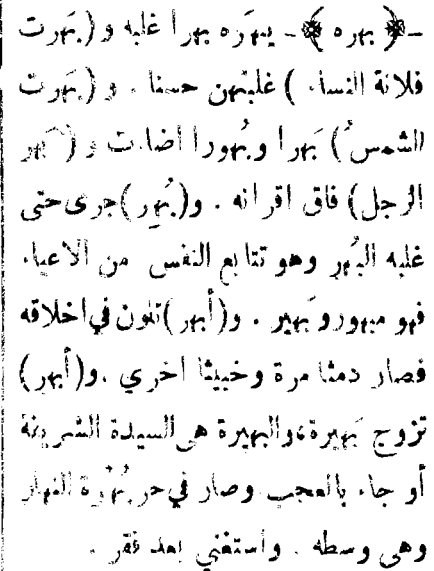 -﴿ بهره ﴾- يبهَره بهرا غلبه و (بهَرت
فلانة النساء ) غلبتهن حسنا . و (بهَرت
الشمسُ) بَهرا وبُهورا اضاءت و (بَهر
الرجل) فاق اقرانه . و(بُهِر)جرى حتى
غلبه البُهر وهو تتابع النفس من الاعياء
فهو مبهور وبَهير . و(أبهر)تلون في اخلاقه
فصار دمثا مرة وخبيثا اخري . و(أبهر)
تزوج بَهيرة،والبهيرة هي السيدة الشريفة
أو جاء بالعجب وصار في حر بُهْرة النهار
وهى وسطه . واستغني بعد فقر .